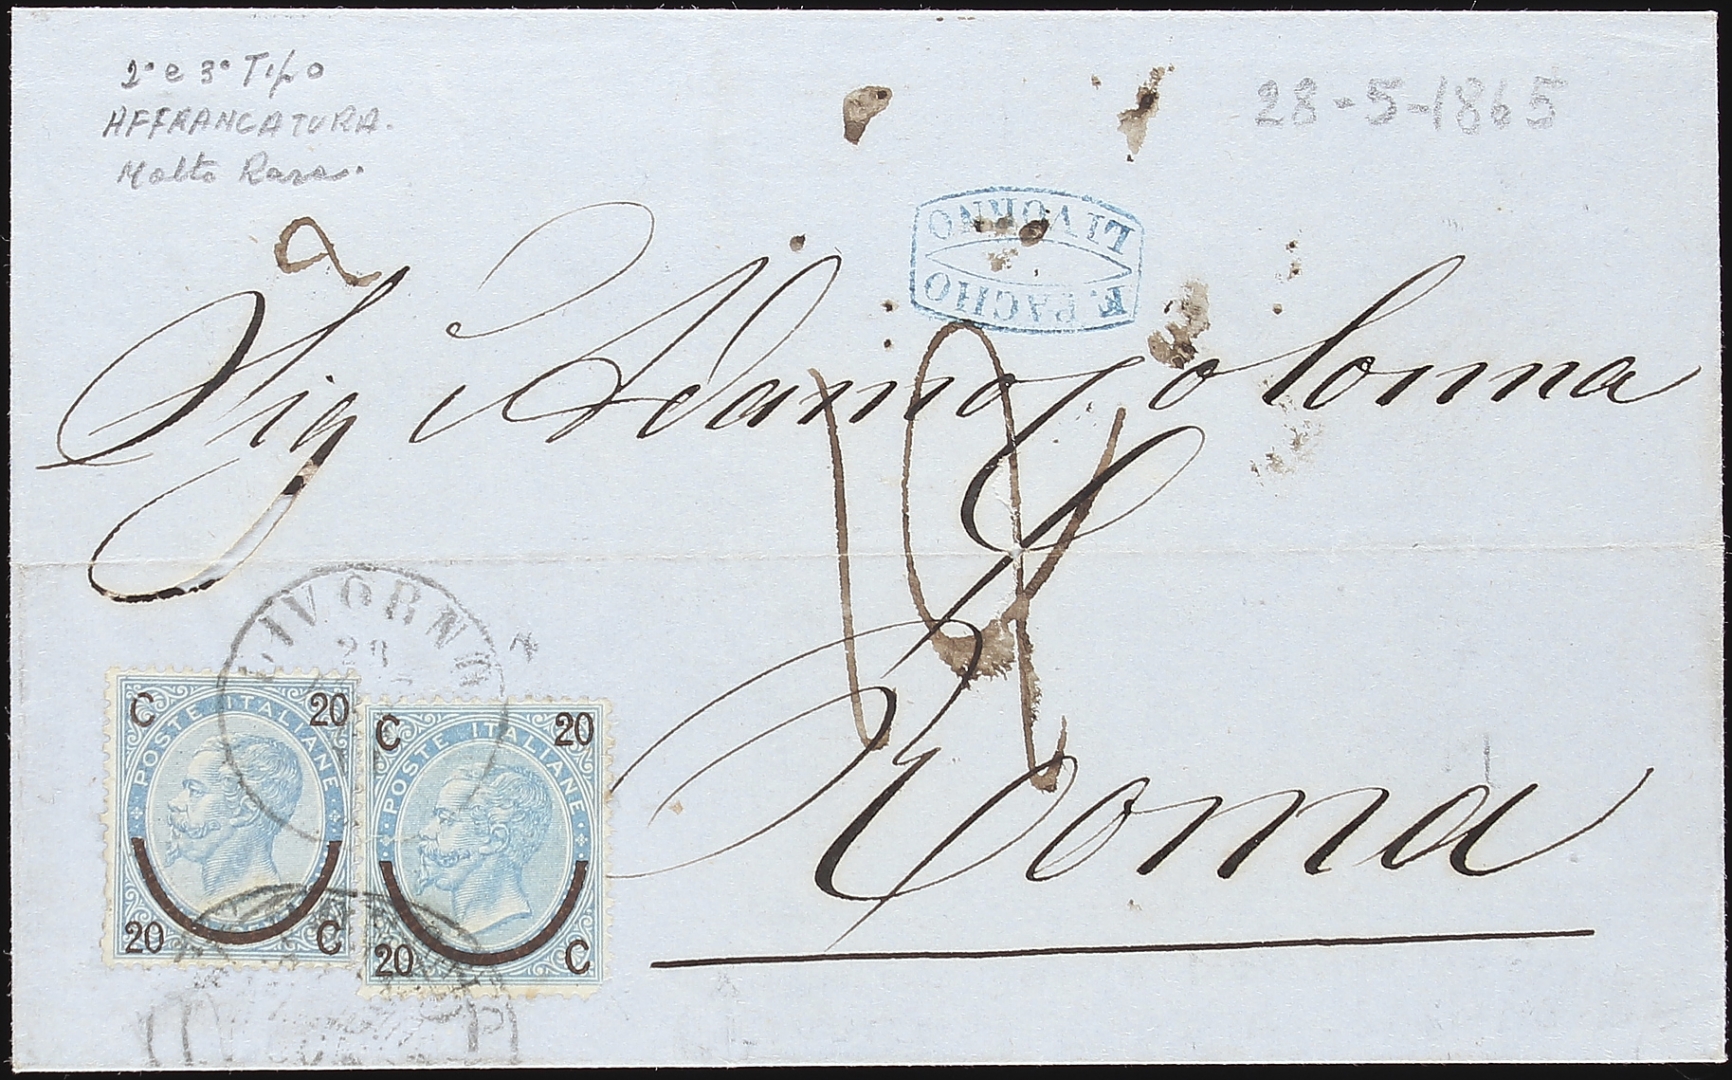 2° e 3° Tipo
AFFRANCATURA.
Molto Rara.
28-5-1865
F. PACHO
LIVORNO
Sig Adamo Colonna
Roma
LIVORNO
28
C 20
POSTE ITALIANE
20 C
C 20
POSTE ITALIANE
20 C